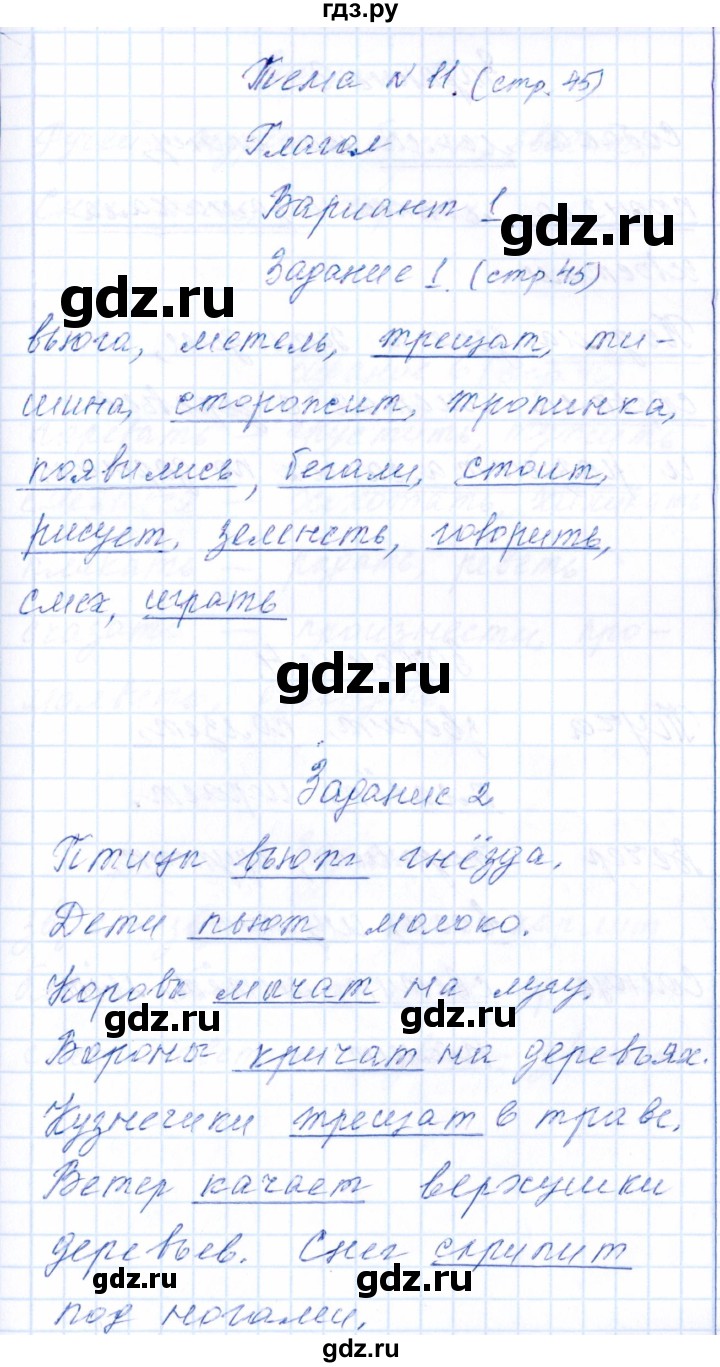 гдз.ру
Тема № 11. (стр. 45)
Глагол
Вариант 1
gdz.ru
Задание 1. (стр. 45)
gdz.ru
вьюга, метель, трещат, ти-
шина, сторожит, тропинка,
появились, бегали, стоит,
рисует, зеленеть, говорить,
смех, играть
gdz.ru
Задание 2
Птицы вьют гнёзда.
Дети пьют молоко.
Коровы мычат на лугу.
gdz.ru gdz.ru
Вороны кричат на деревьях.
Кузнечики трещат в траве.
Ветер качает верхушки
деревьев. Снег скрипит
gdz.ru gdz.ru
под ногами.
gdz.ru